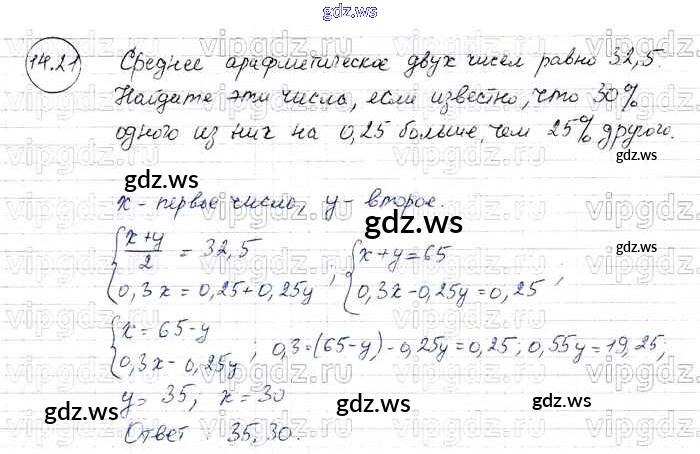 gdz.ws
14.21 Среднее арифметическое двух чисел равно 32,5.
Найдите эти числа, если известно, что 30%
одного из них на 0,25 больше, чем 25% другого.
gdz.ws
x - первое число, y - второе.
gdz.ws
{ (x+y)/2 = 32,5 ; { x+y=65 ;
0,3x = 0,25+0,25y 0,3x-0,25y=0,25
{ x = 65-y
0,3x-0,25y ; 0,3·(65-y)-0,25y=0,25; 0,55y=19,25;
gdz.ws
y= 35, x=30
gdz.ws gdz.ws
Ответ : 35,30.
gdz.ws